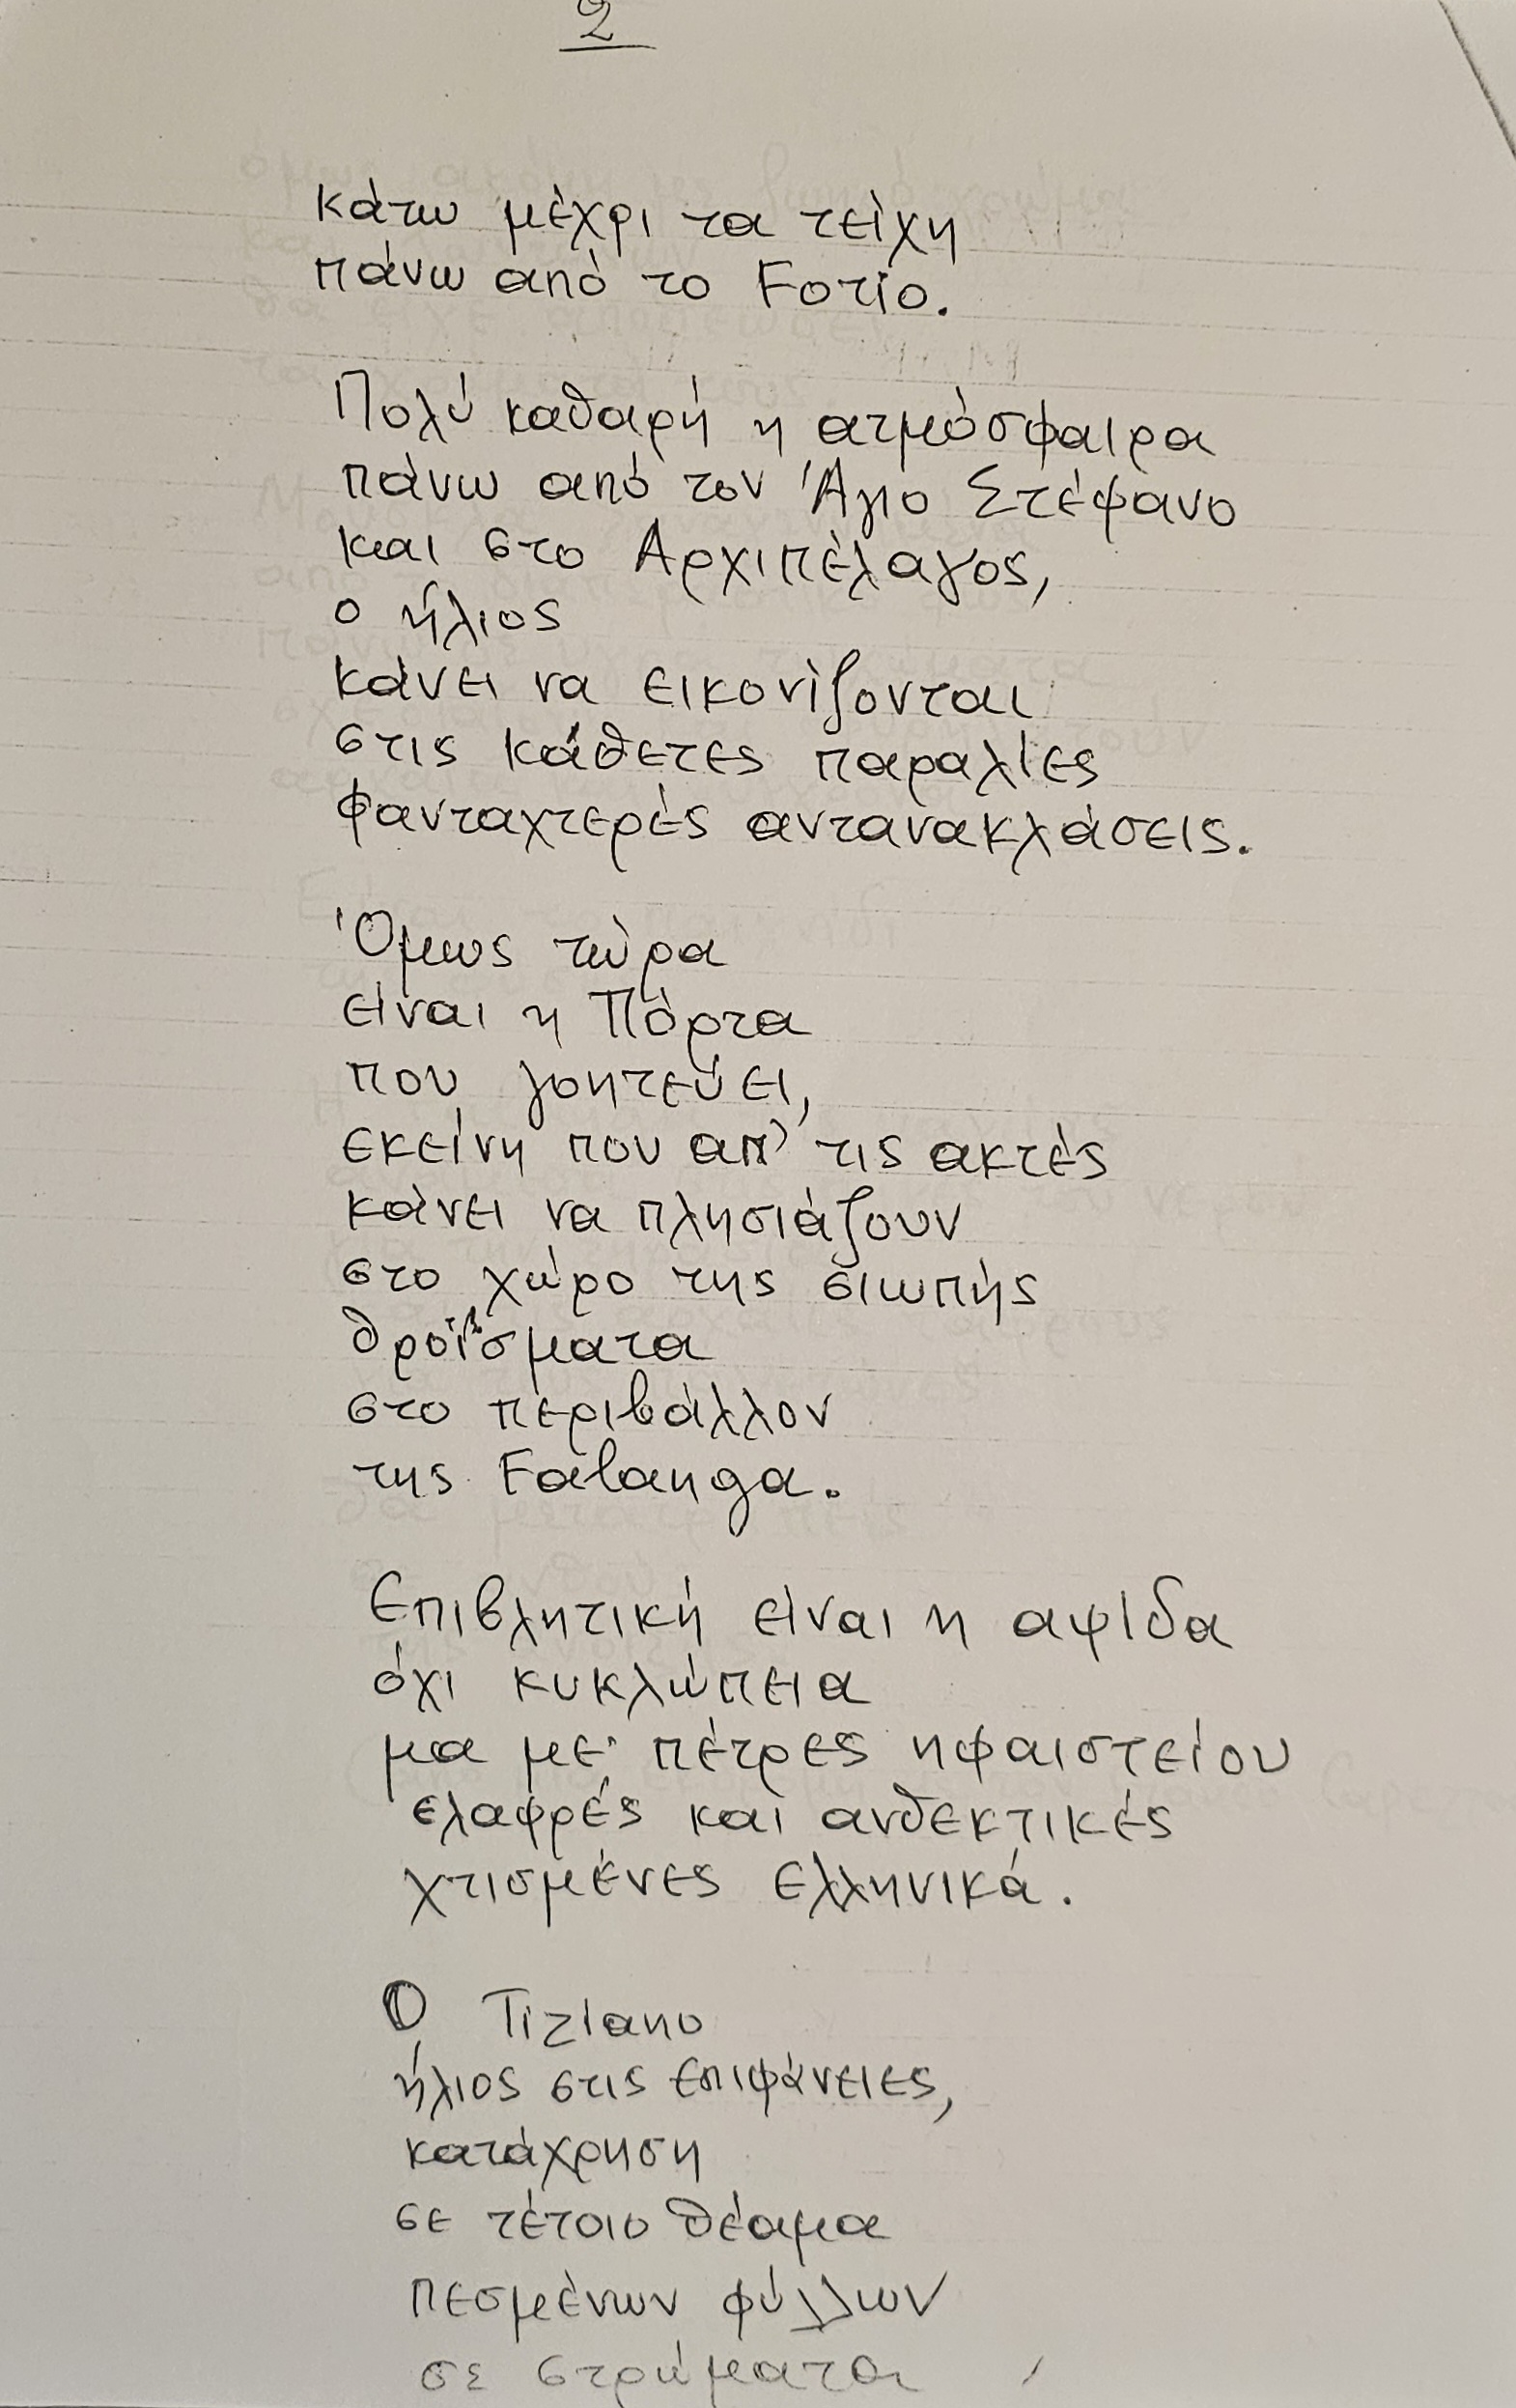 2
κάτω μέχρι τα τείχη
πάνω από το Forio.
Πολύ καθαρή η ατμόσφαιρα
πάνω από τον Άγιο Στέφανο
και στο Αρχιπέλαγος,
ο ήλιος
κάνει να εικονίζονται
στις κάθετες παραλίες
φανταχτερές αντανακλάσεις.
Όμως τώρα
είναι η Πόρτα
που γοητεύει,
εκείνη που απ' τις ακτές
κάνει να πλησιάζουν
στο χώρο της σιωπής
θροΐσματα
στο περιβάλλον
της Falanga.
Επιβλητική είναι η αψίδα
όχι κυκλώπεια
μα με πέτρες ηφαιστείου
ελαφρές και ανθεκτικές
χτισμένες ελληνικά.
Ο Tiziano
ήλιος στις επιφάνειες,
κατάχρηση
σε τέτοιο θέαμα
πεσμένων φύλλων
σε στρώματα